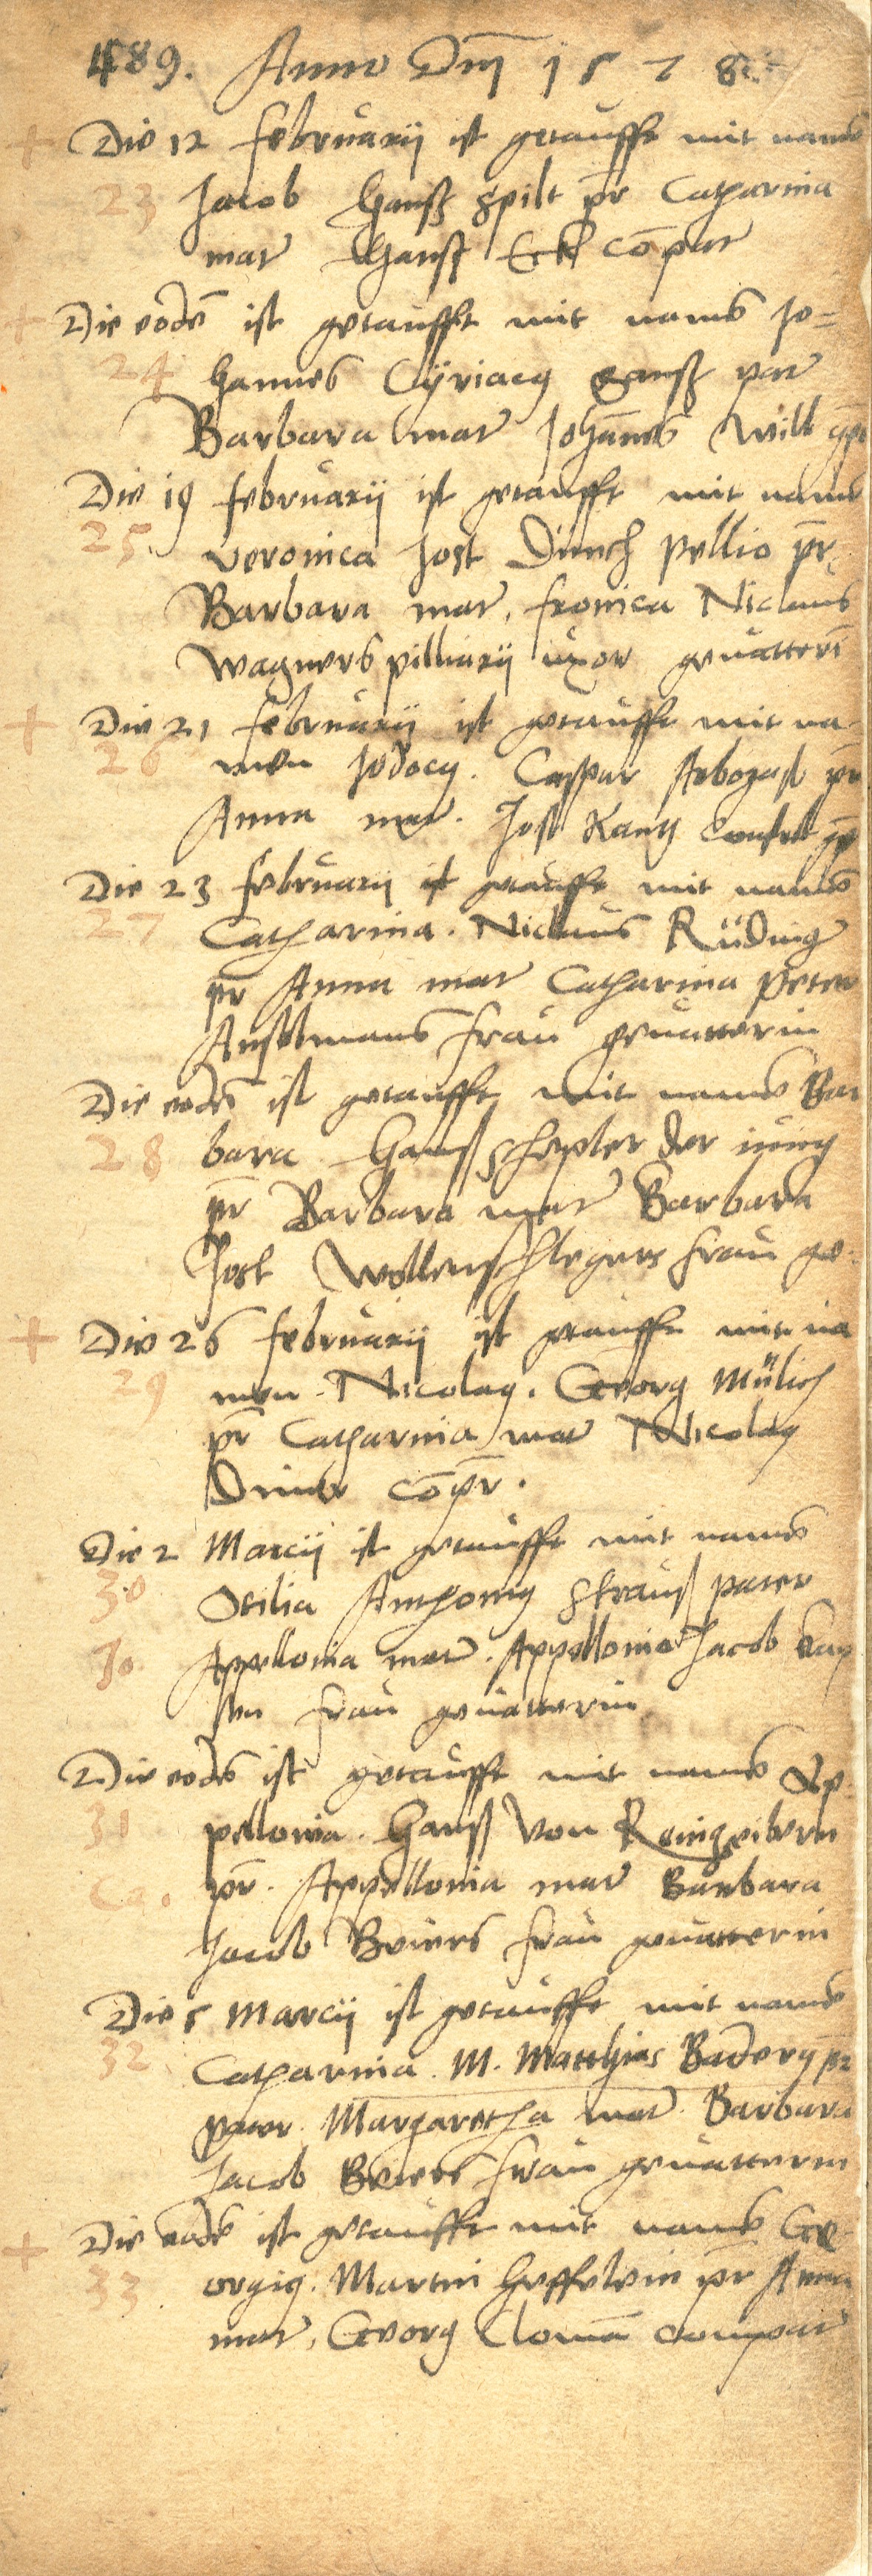 489. Anno Dm̄ 1578
+ Die 12 februarij ist getaufft mit name
23 Jacob Hanß Spilt pr̄ Catharina
mat Hanß Eck cōpat
+ Die eodē ist getaufft mit name Jo=
24 hannes Cijriacus Hanß pat
Barbara mat Johānes Will
Die 19 februarij ist getaufft mit name
25 veronica Jost Dinch pellio pr̄
Barbara mat, fronica Niclaus
Wagners pilliarij uxor geuatterī
+ Die 21 februarij ist getaufft mit na-
26 men Jodocus. Caspar Arbogast pr̄
Anna mat. Jost Kantz
Die 23 februarij ist getaufft mit name
27 Catharina. Niclaus Rüding
pr̄ Anna mat Catharina Peter
Anselmans frau geuatterin
Die eodē ist getaufft mit name Bar
28 bara Hanß Schepler der jung
pr̄ Barbara mat Barbara
Jost Wollenschlegers frau ge-
+ Die 26 februarij ist getaufft mit na
29 men. Nicolaus. Georg Mülich
pr̄ Catharina mat Nicolaus
cōpr̄.
Die 2 Marcij ist getaufft mit name
30 Otilia Anthonius Strauß pater
Jo Appellonia mat. Appellonia Jacob
sen frau geuatterin
Die eodē ist getaufft mit name Ap
31 pellonia. Hanß von Reingeibern
Ca. pr̄. Appellonia mat Barbara
Jacob Beiers frau geuatterin
Die 5 Marcij ist getaufft mit name
32 Catharina. M. Matthias Baderus pr̄
pater. Margaretha mat. Barbara
Jacob Beiers frau geuatterin
+ Die eodē ist getaufft mit name Ge-
33 orgius. Martin Heffelein pr̄ Anna
mat, Georg Clomā compat